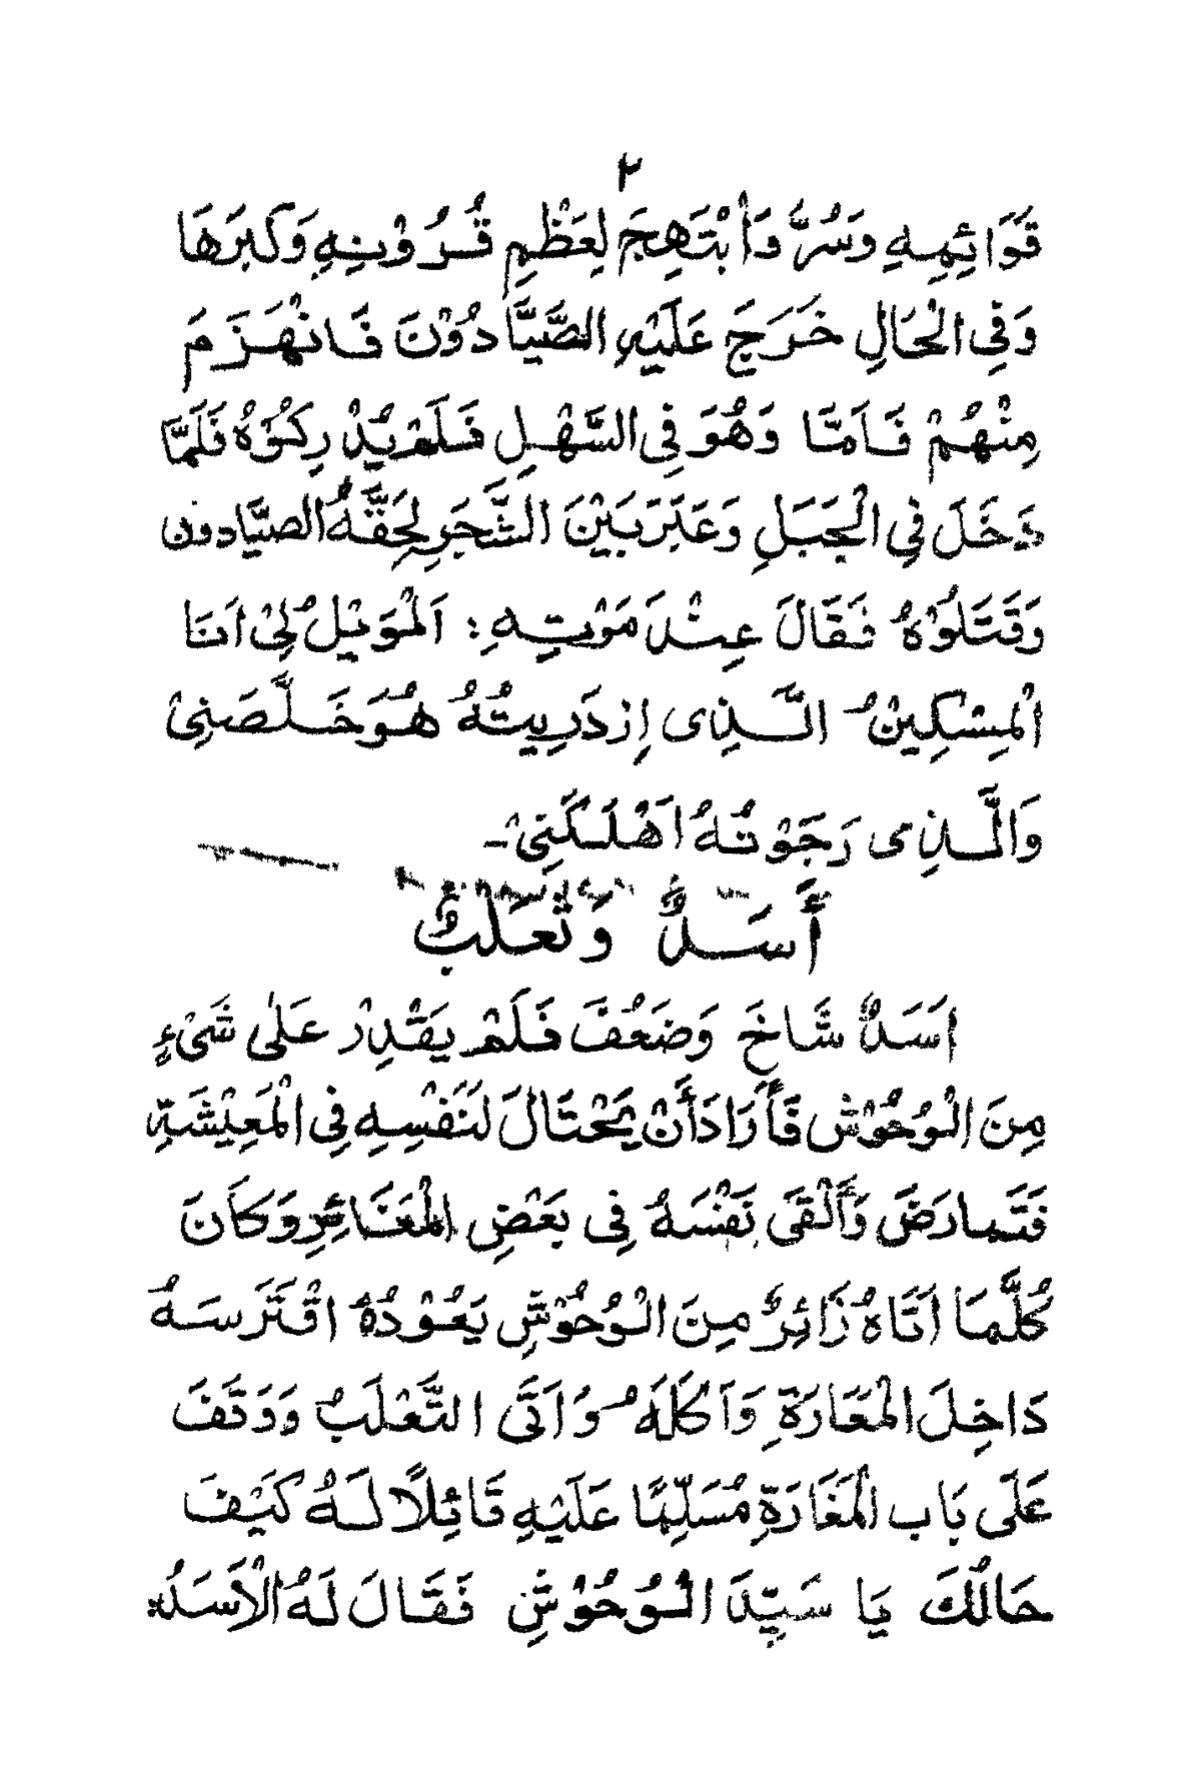 ٢
قَوَائِمِهِ وَسُرَّ وَابْتَهِجَ لِعَظْمِ قُرُوْنِهِ وَكِبَرَهَا
وَفِى الْحَالِ خَرَجَ عَلَيْهِ الصَّيَّادُوْنَ فَانْهَزَمَ
مِنْهُمْ فَاَمَّا وَهُوَ فِى السَّهْلِ فَلَمْ يُدْرِكُوْهُ فَلَمَّا
دَخَلَ فِى الْجَبَلِ وَعَبَرَ بَيْنَ الشَّجَرِ لَحِقَهُ الصَّيَّادون
وَقَتَلُوْهُ فَقَالَ عِنْدَ مَوْتِهِ: اَلْوَيْلُ لِىْ اَنَا
الْمِسْكِيْنُ الَّذِى اِزدَرِيتُهُ هُوَ خَلَّصَنِىْ
وَالَّذِى رَجَوْتُهُ اَهْلَكَنِىْ۔
أَسَدٌ وَثَعَلَبٌ
اَسَدٌ شَاخَ وَضَعُفَ فَلَمْ يَقْدِرْ عَلٰى شَىْءٍ
مِنَ الْوُحُوْشِ فَأَرَادَ أَنْ يَحْتَالَ لَنَفْسِهِ فِى الْمَعِيْشَةِ
فَتَمارَضَ وَأَلْقَى نَفْسَهُ فِى بَعْضِ الْمَغَائِرِ وَكَانَ
كُلَّمَا اَتَاهُ زَائِرٌ مِنَ الْوُحُوْشِ يَعُوْدُهُ افْتَرَسَهُ
دَاخِلَ الْمَغَارَةِ وَاَكَلَهُ وَاَتَى الثَّعْلَبُ وَوَقَفَ
عَلَى بَاب الْمَغَارَةِ مُسَلِّمًا عَلَيْهِ قَائِلًا لَهُ كَيْفَ
حَالُكَ يَا سَيِّدَ الْوُحُوْشِ فَقَالَ لَهُ الْاَسَدُ: